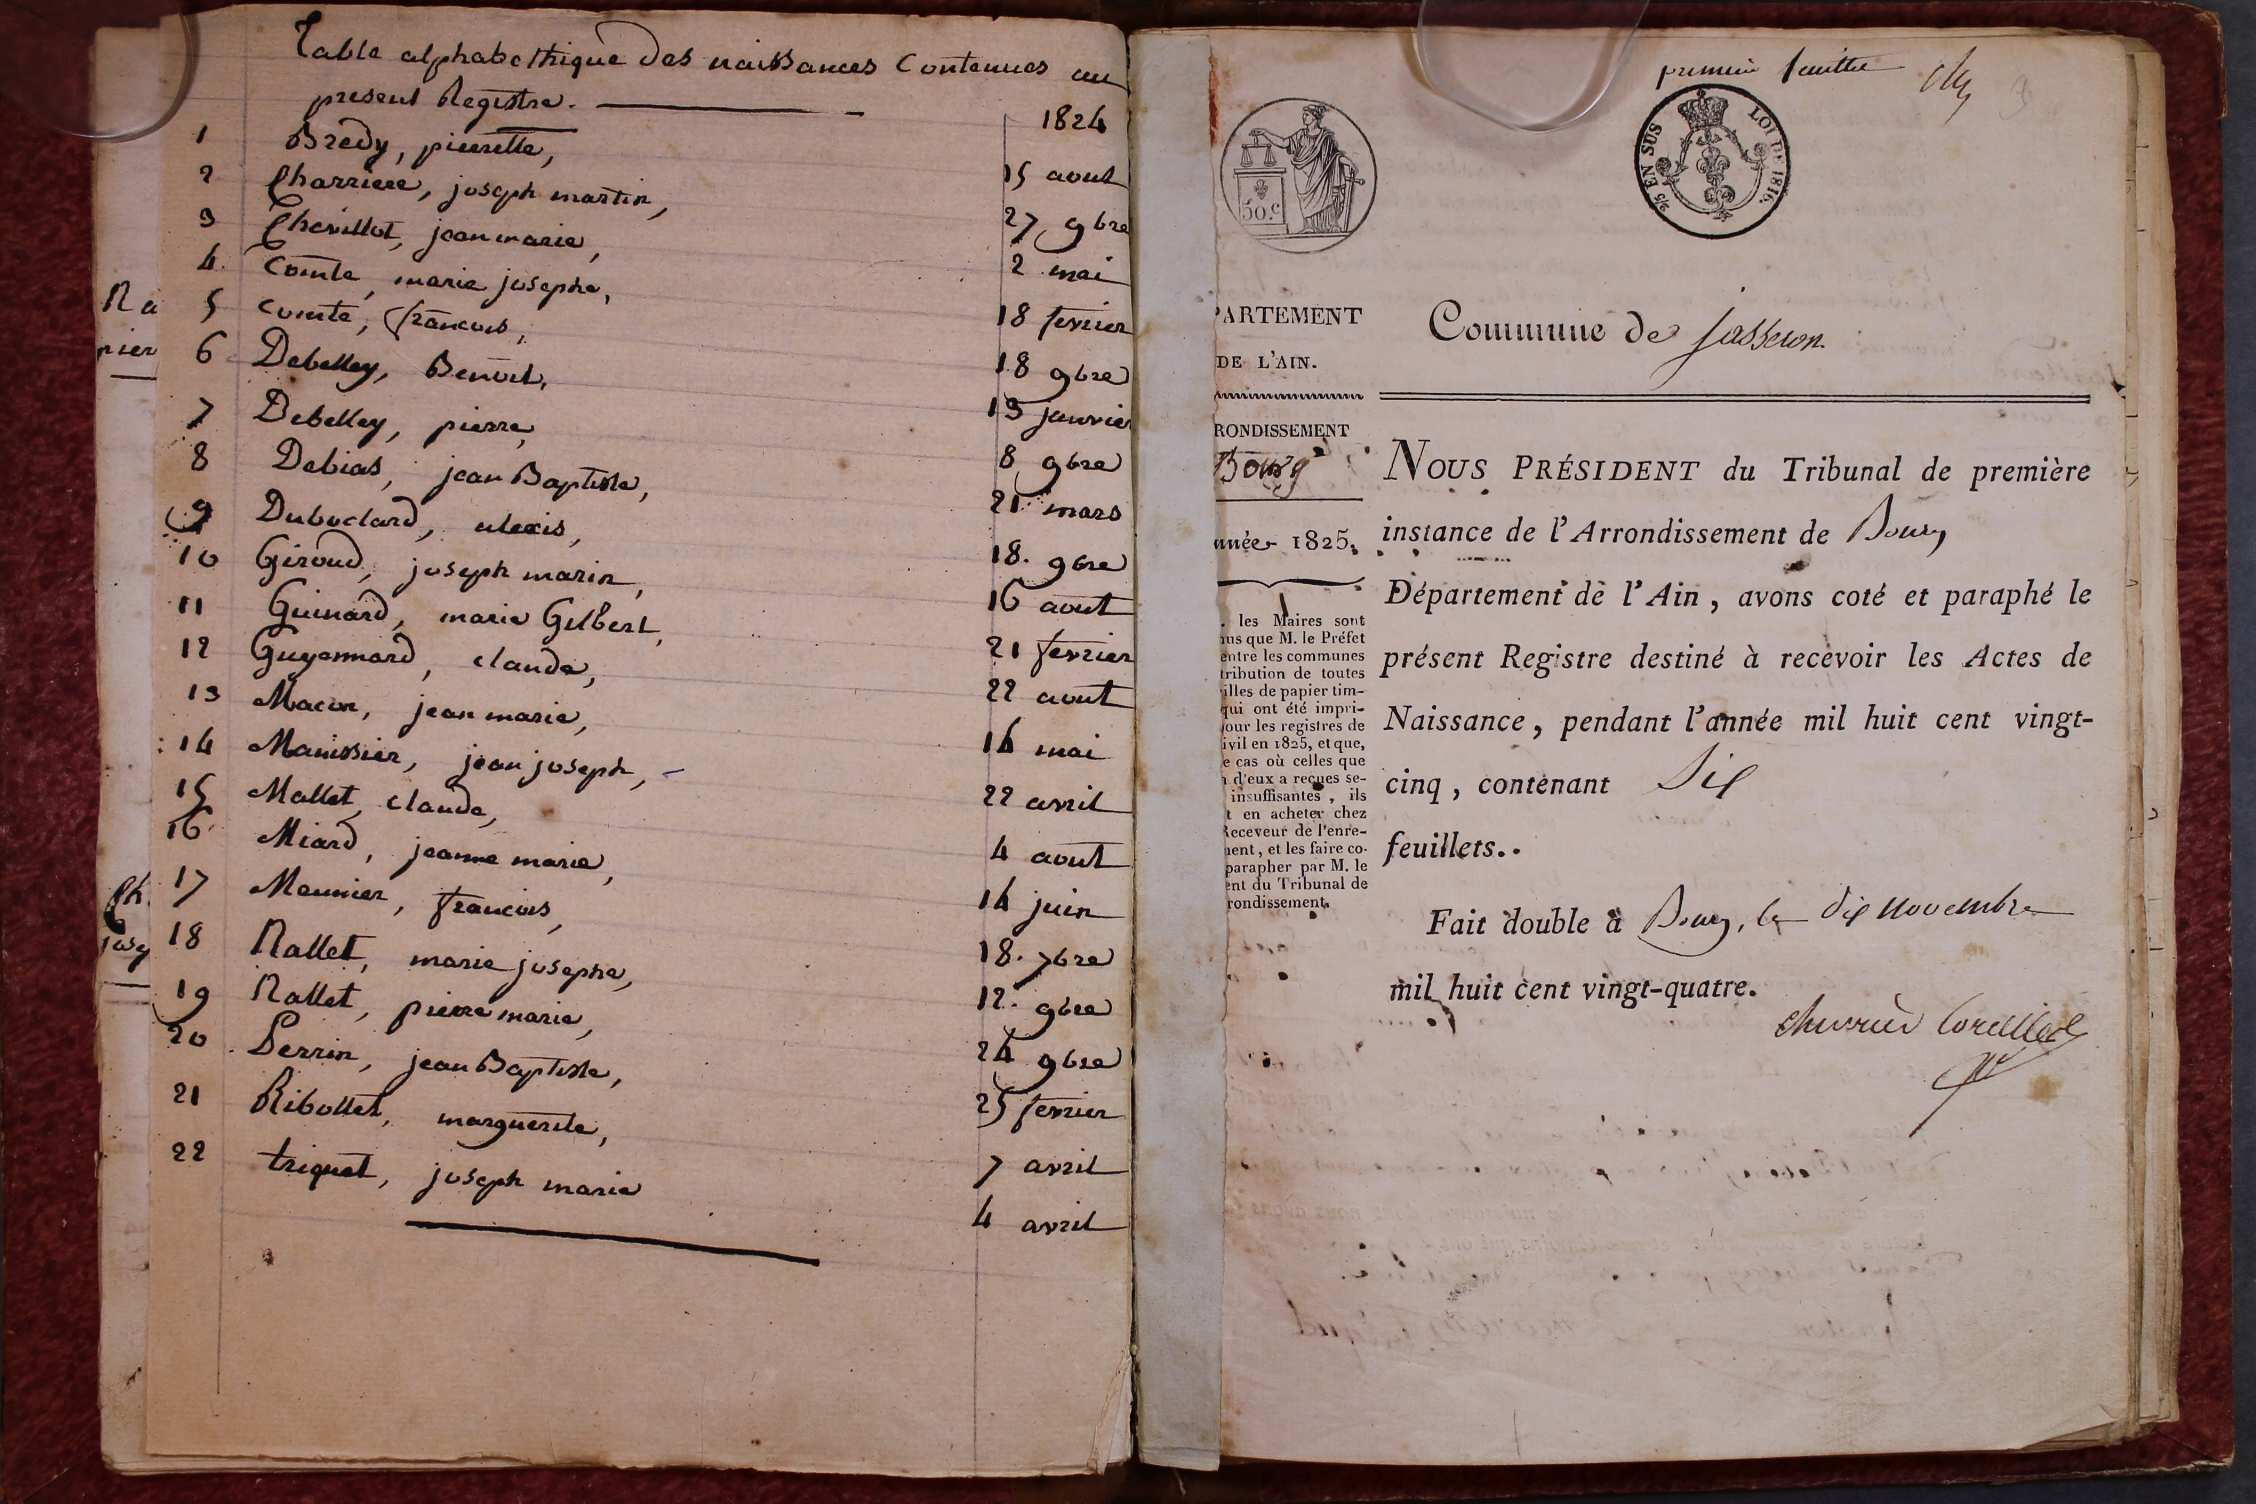 Table alphabethique des naissances Contenues au
present Registre.
1824
1 Bredy, pierrette, 15 aout
2 Charriere, joseph martin, 27 9bre
3 Chevillot, jean marie, 2 mai
4 Comte, marie josephe, 18 fevrier
5 Comte, francois, 18 9bre
6 Debelley, Benoit, 13 janvier
7 Debelley, pierre, 8 9bre
8 Debias, jean Baptiste, 21 mars
9 Duboclard, alexis, 18. 9bre
10 Giroud, joseph marin, 16 aout
11 Guinard, marie Gilbert, 21 fevrier
12 Guyennard, claude, 22 aout
13 Macon, jean marie, 14 mai
14 Manissier, jean joseph, 22 avril
15 Mallet, claude, 4 aout
16 Miard, jeanne marie, 14 juin
17 Meunier, francois, 18. 7bre
18 Nallet, marie josephe, 12. 9bre
19 Nallet, pierre marie, 24 9bre
20 Perrin, jean Baptiste, 25 fevrier
21 Ribollet, marguerite, 7 avril
22 triquet, joseph marie 4 avril
Na
pier
Ch
josep
premier feuillet
50.c
25 EN SUS LOI DE 1816.
PARTEMENT
DE L'AIN.
RONDISSEMENT
Bourg
nnée 1825.
. les Maires sont
us que M. le Préfet
entre les communes
tribution de toutes
illes de papier tim-
qui ont été impri-
our les registres de
ivil en 1825, et que,
e cas où celles que
n d'eux a reçues se-
insuffisantes, ils
t en acheter chez
Receveur de l'enre-
ent, et les faire co-
parapher par M. le
ent du Tribunal de
rondissement.
Commune de Jasseron.
NOUS PRÉSIDENT du Tribunal de première
instance de l'Arrondissement de Bourg
Département de l'Ain, avons coté et paraphé le
présent Registre destiné à recevoir les Actes de
Naissance, pendant l'année mil huit cent vingt-
cinq, contenant Dix
feuillets..
Fait double à Bourg, le dix novembre
mil huit cent vingt-quatre.